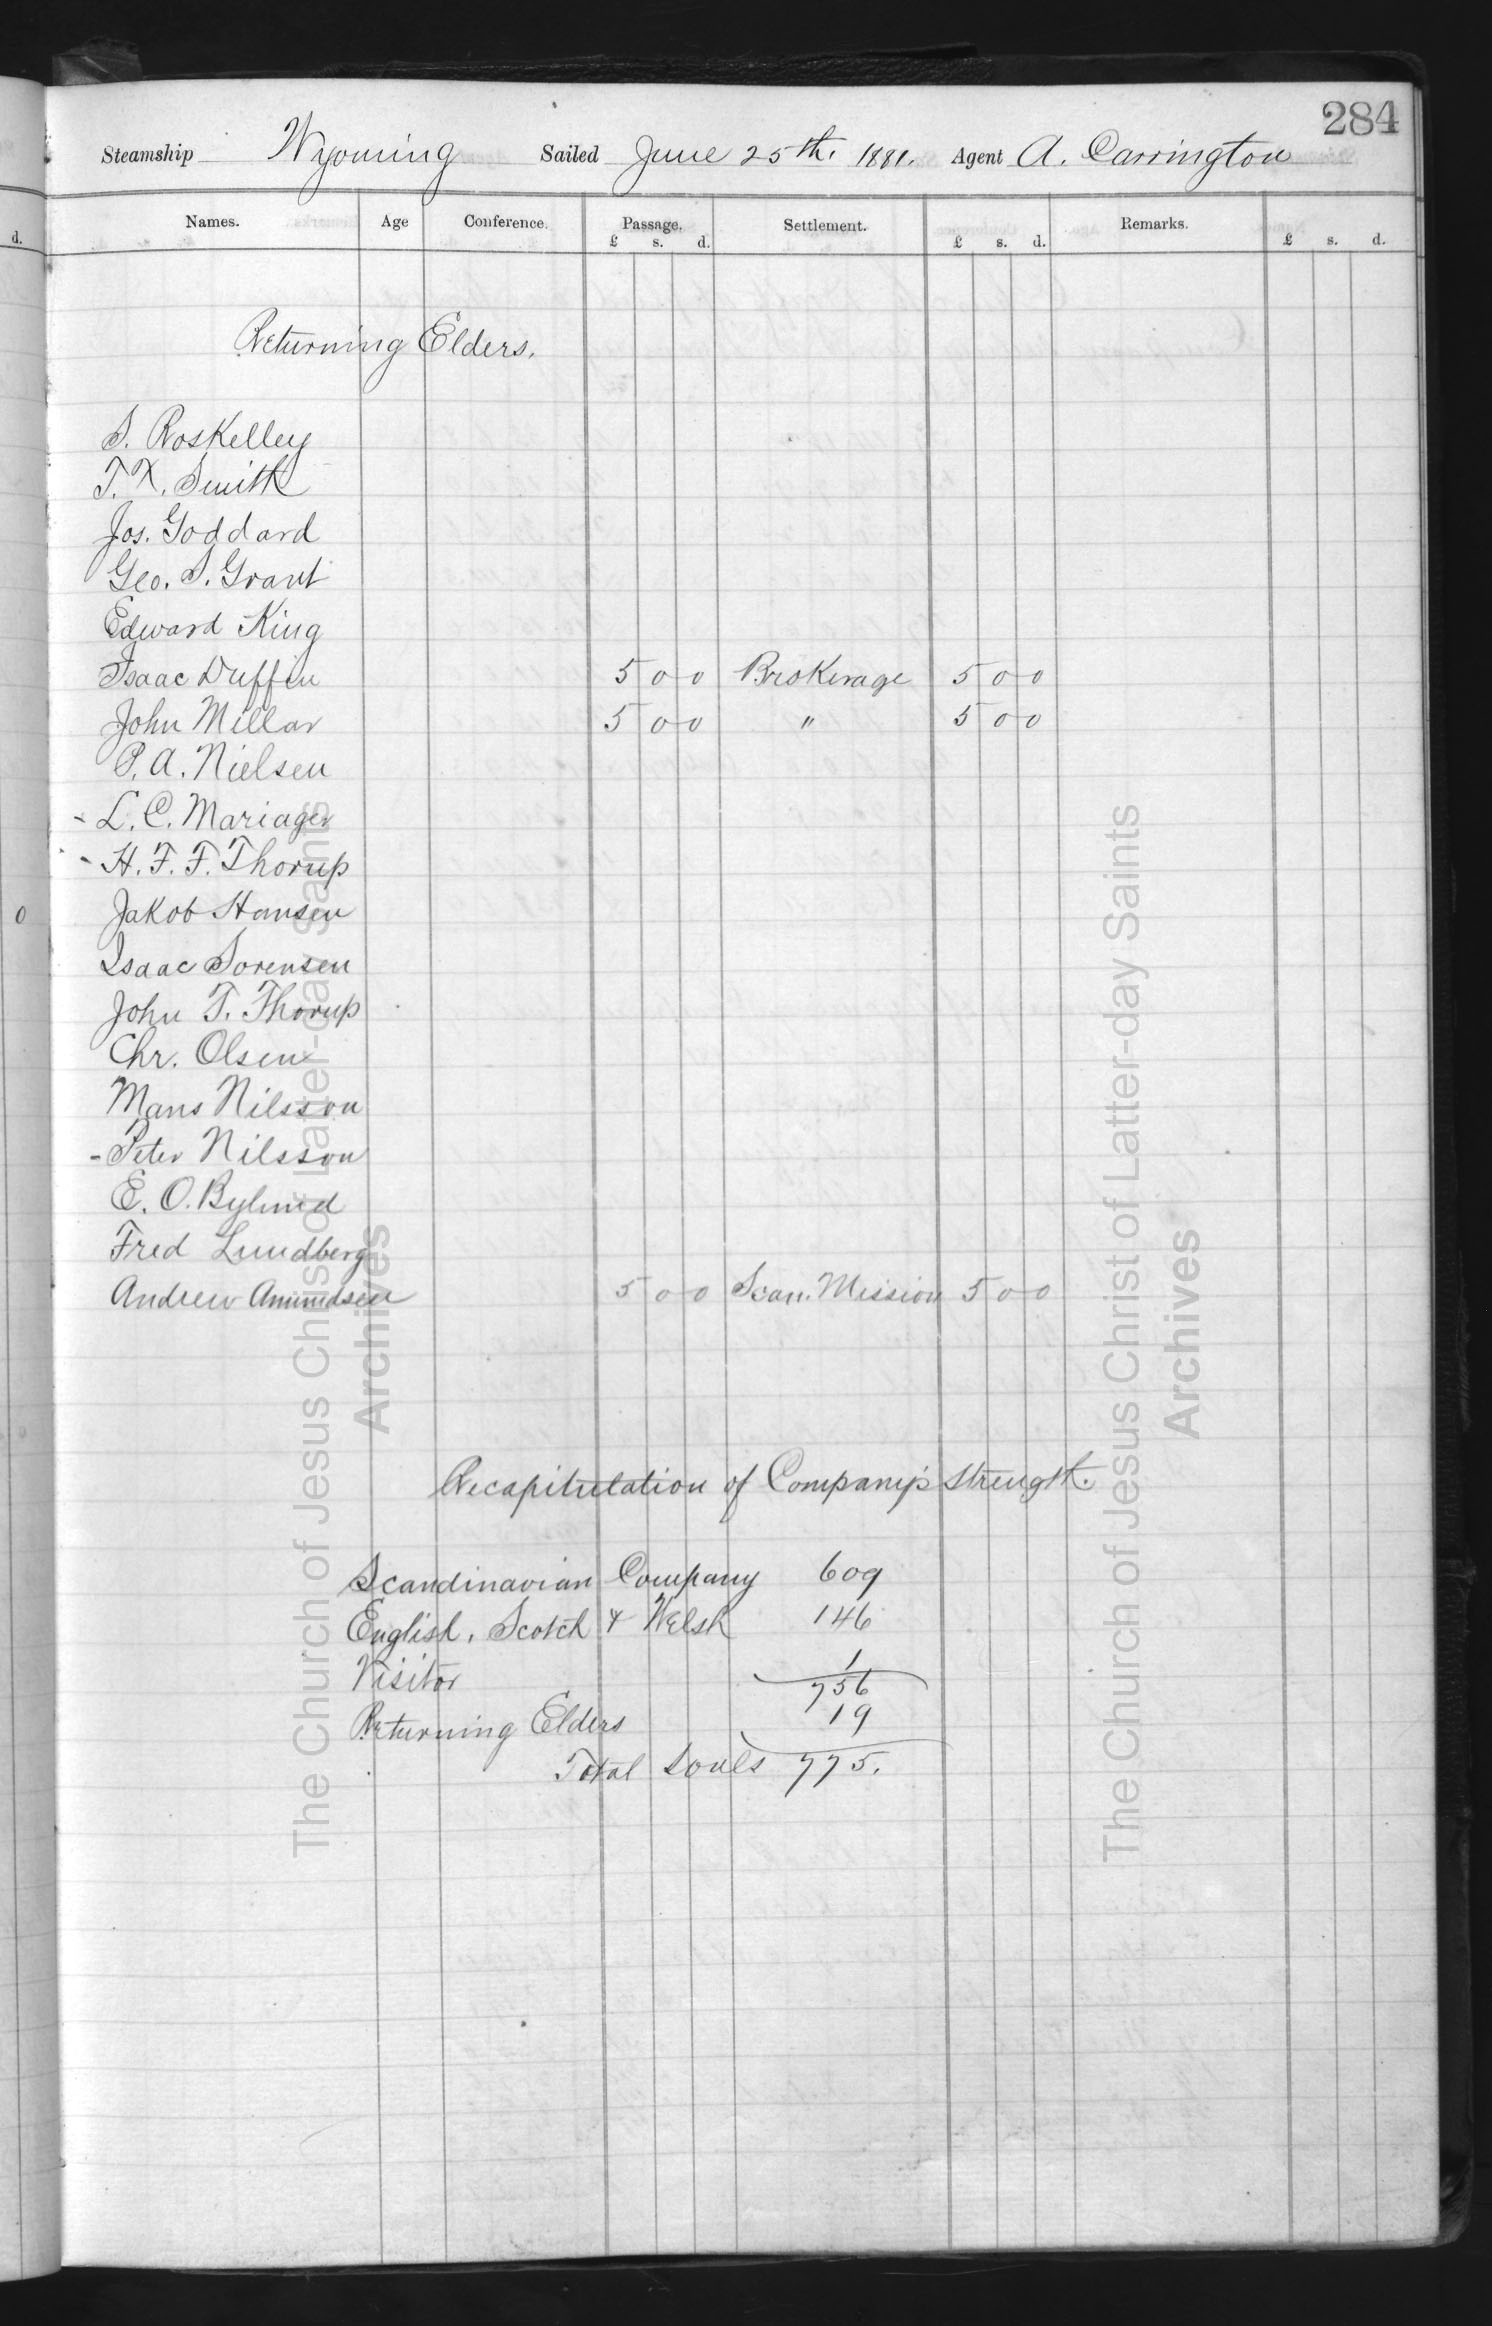 284
Steamship Wyoming Sailed June 25th. 1881. Agent A. Carrington
Names. Age Conference. Passage. Settlement. Remarks.
d. £ s. d. £ s. d. £ s. d.
Returning Elders.
S. Roskelley
T. X. Smith
Jos. Goddard
Geo. S. Grant
Edward King
Isaac Duffin 5 0 0 Brokerage 5 0 0
John Millar 5 0 0 " 5 0 0
P. A. Nielsen
- L. C. Mariager
- H. F. F. Thorup
0 Jakob Hansen
Isaac Sorensen
John T. Thorup
Chr. Olsen
Mans Nilsson
- Peter Nilsson
E. O. Bylund
Fred Lundberg
Andrew Amundsen 5 0 0 Scan. Mission 5 0 0
Recapitulation of Company's strength.
Scandinavian Company 609
English, Scotch & Welsh 146
Visitor 1
756
Returning Elders 19
Total Souls 775.
The Church of Jesus Christ of Latter-day Saints
Archives
The Church of Jesus Christ of Latter-day Saints
Archives